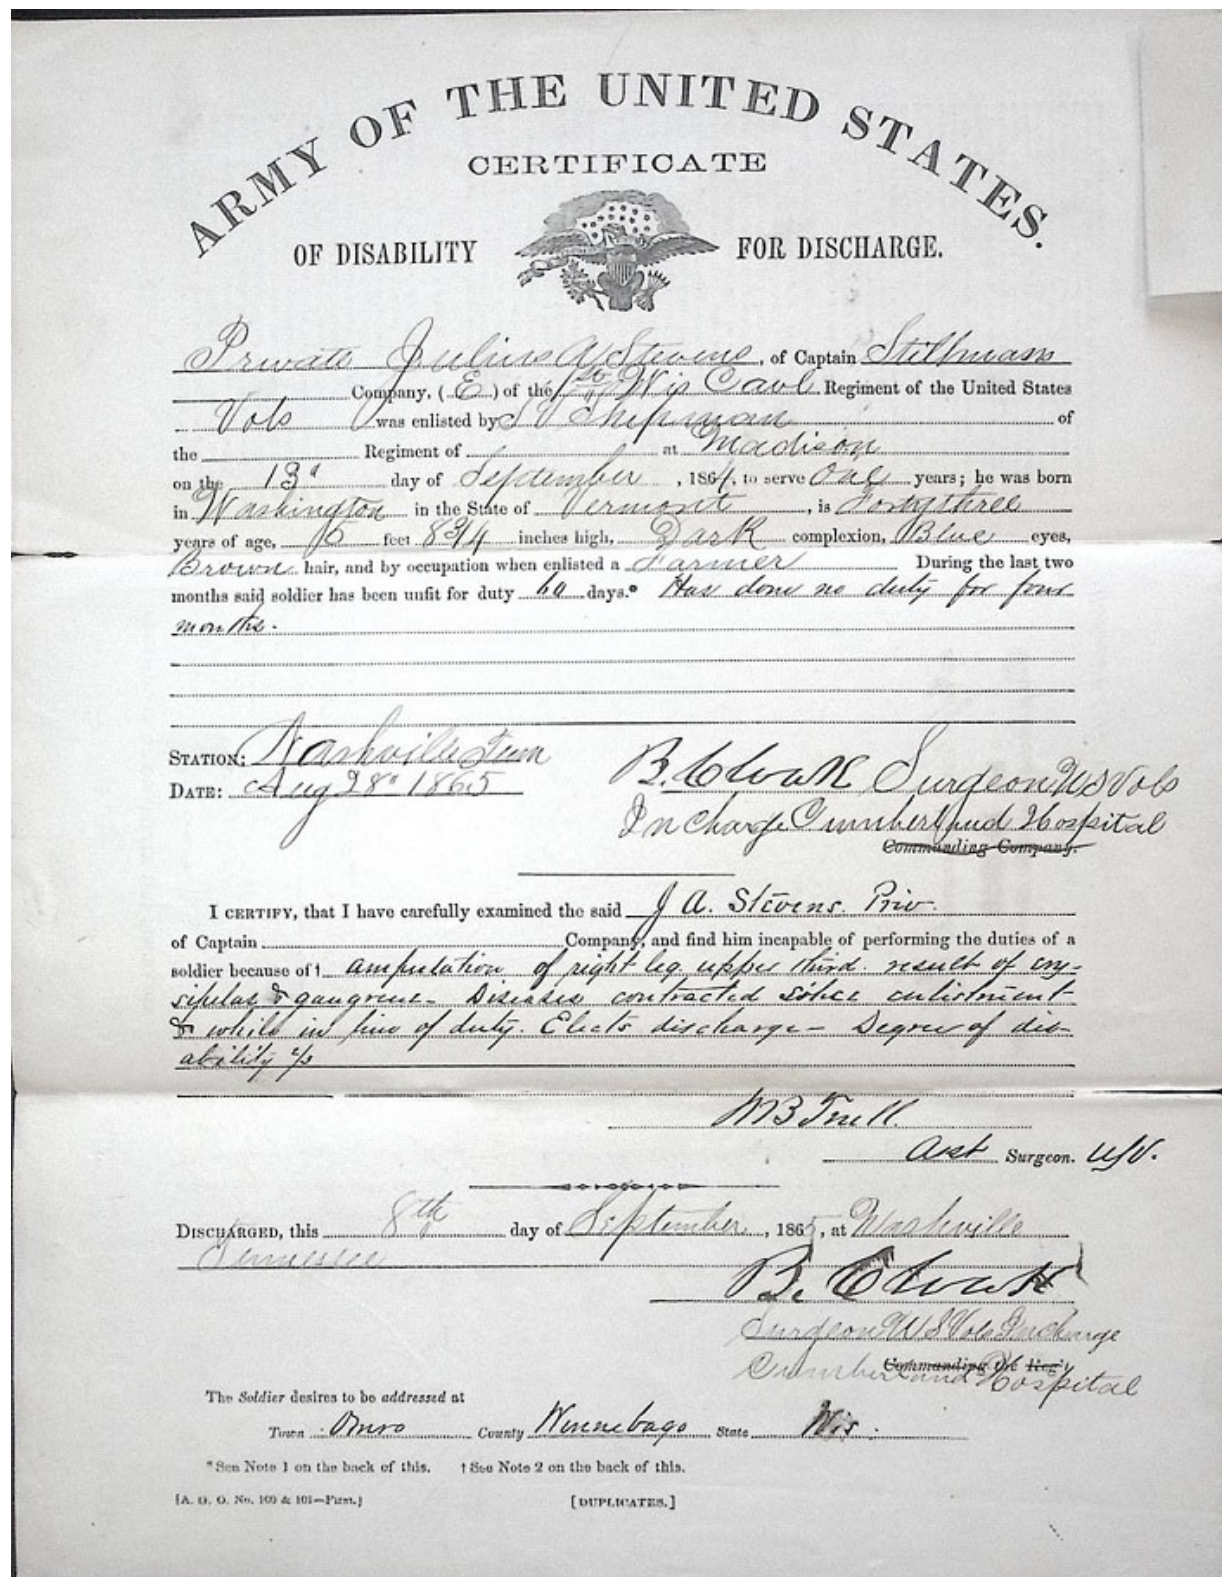 ARMY OF THE UNITED STATES.
CERTIFICATE
OF DISABILITY FOR DISCHARGE.
Private Julius A Stevens, of Captain Stillmans
Company, (E) of the 1st Wis Cavl Regiment of the United States
Vols was enlisted by Shipman of
the Regiment of at Madison
on the 13th day of September, 1864, to serve One years; he was born
in Washington in the State of Vermont, is Fortythree
years of age, 5 feet 8 3/4 inches high, Dark complexion, Blue eyes,
Brown hair, and by occupation when enlisted a Farmer During the last two
months said soldier has been unfit for duty 60 days.* Has done no duty for four
months.
STATION: Nashville Tenn
DATE: Aug 28th 1865
B. Cloak Surgeon US Vols
In Charge Cumberland Hospital
Commanding Company.
I CERTIFY, that I have carefully examined the said J A. Stevens. Priv.
of Captain Company, and find him incapable of performing the duties of a
soldier because of † amputation of right leg upper third. result of ery-
sipelas & gangrene - Diseases contracted since enlistment
& while in line of duty. Elects discharge - Degree of dis-
ability
Asst Surgeon. USV.
DISCHARGED, this 8th day of September, 1865, at Nashville
Tennessee
B. Cloak
Surgeon US Vols Incharge
Commanding the Reg't
Cumberland Hospital
The Soldier desires to be addressed at
Town Omro County Winnebago State Wis.
*See Note 1 on the back of this. † See Note 2 on the back of this.
[A. G. O. No. 100 & 101—First.] [DUPLICATES.]